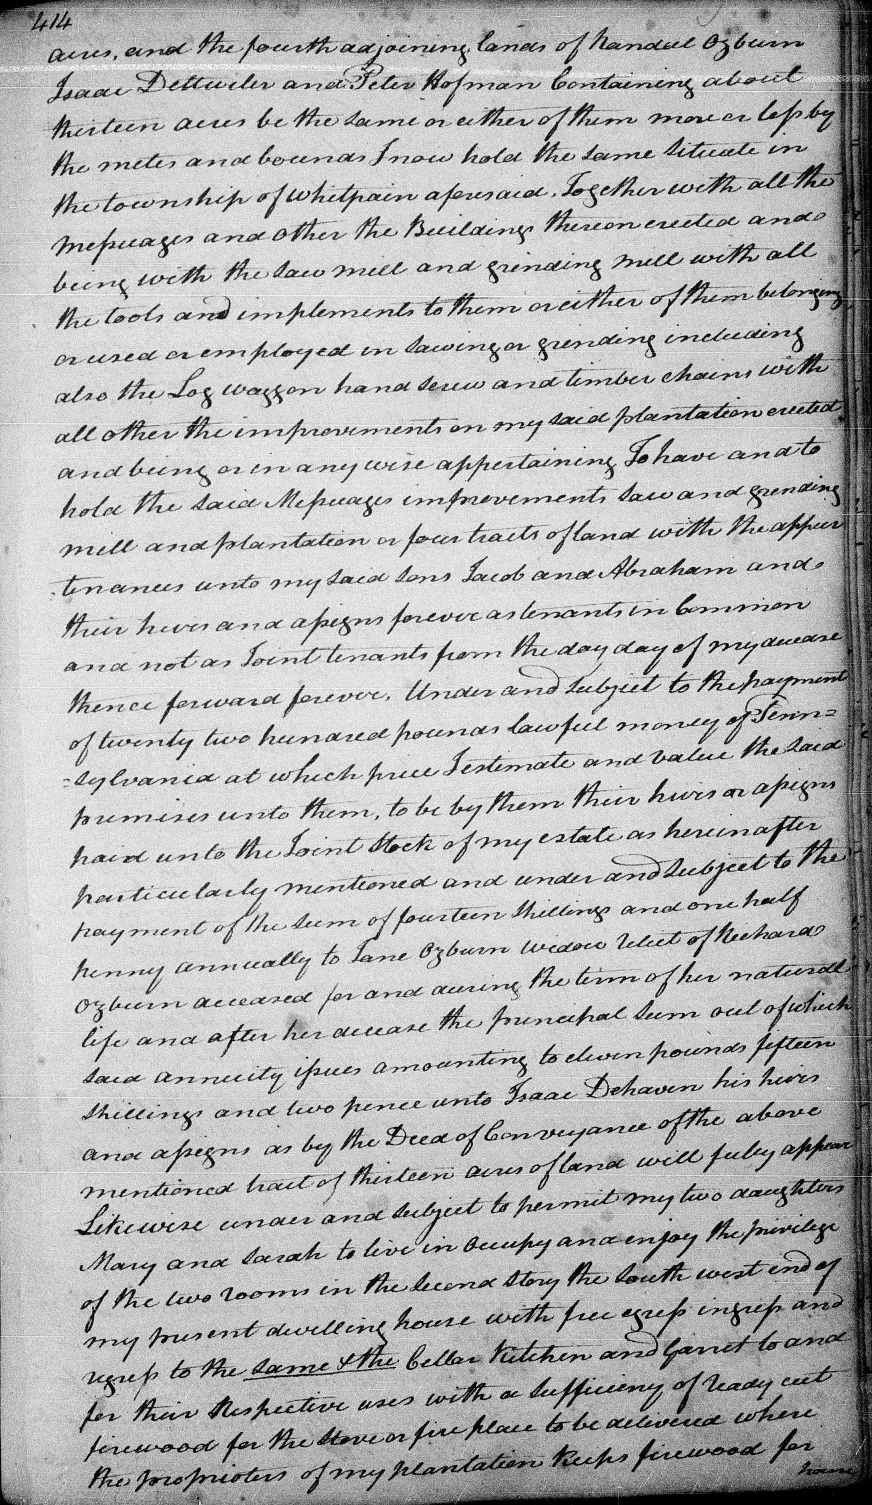 414
acres, and the fourth adjoining lands of Randal Ozburn
Isaac Dettweiler and Peter Hofman Containing about
thirteen acres be the same or either of them more or less by
the metes and bounds I now hold the same Situate in
the township of Whitpain aforesaid. Together with all the
Messuages and other the Buildings thereon erected and
being with the Saw mill and grinding mill with all
the tools and implements to them or either of them belonging
or used or employed in Sawing or grinding including
also the Log waggon hand screw and timber chains with
all other the improvements on my said plantation erected
and being or in any wise appertaining To have and to
hold the said Messuages improvements Saw and grinding
mill and plantation or four tracts of land with the appur
tenances unto my said sons Jacob and Abraham and
their heirs and assigns forever as tenants in Common
and not as Joint tenants from the day day of my decease
thence forward forever. Under and Subject to the payment
of twenty two hundred pounds lawful money of Penn=
=sylvania at which price I estimate and value the said
premises unto them, to be by them their heirs or assigns
paid unto the Joint Stock of my estate as herein after
particularly mentioned and under and Subject to the
payment of the Sum of fourteen Shillings and one half
penny annually to Jane Ozburn widow relict of Richard
Ozburn deceased for and during the term of her natural
life and after her decease the principal Sum out of which
said annuity issues amounting to eleven pounds fifteen
Shillings and two pence unto Isaac Dehaven his heirs
and assigns as by the Deed of Conveyance of the above
mentioned tract of thirteen acres of land will fully appear
Likewise under and Subject to permit my two daughters
Mary and Sarah to live in occupy and enjoy the privilege
of the two rooms in the Second Story the South west end of
my present dwelling house with free egress ingress and
regress to the same & the Cellar Kitchen and Garret to and
for their Respective uses with a Sufficiency of ready cut
firewood for the Stove or fire place to be delivered where
the proprietors of my plantation keeps firewood for